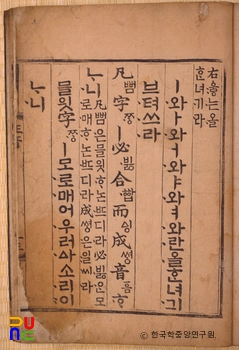 右ᅌᅮᇢ는올
ᄒᆞᆫ녀기라
ㅣ와ㅏ와ㅓ와ㅑ와ㅕ와란올ᄒᆞᆫ녀긔
브텨쓰라
凡뻠字ᄍᆞᆼㅣ必빓合ᅘᅡᆸ而ᅀᅵᆼ成쎵音ᅙᅳᆷᄒᆞ
ᄂᆞ니
凡뻠은믈읫ᄒᆞ논ᄠᅳ디라必빓은모
로매ᄒᆞ논ᄠᅳ디라成쎵은일씨라
믈읫字ᄍᆞᆼㅣ모로매어우러ᅀᅡ소리이
ᄂᆞ니
ⓒ 한국학중앙연구원